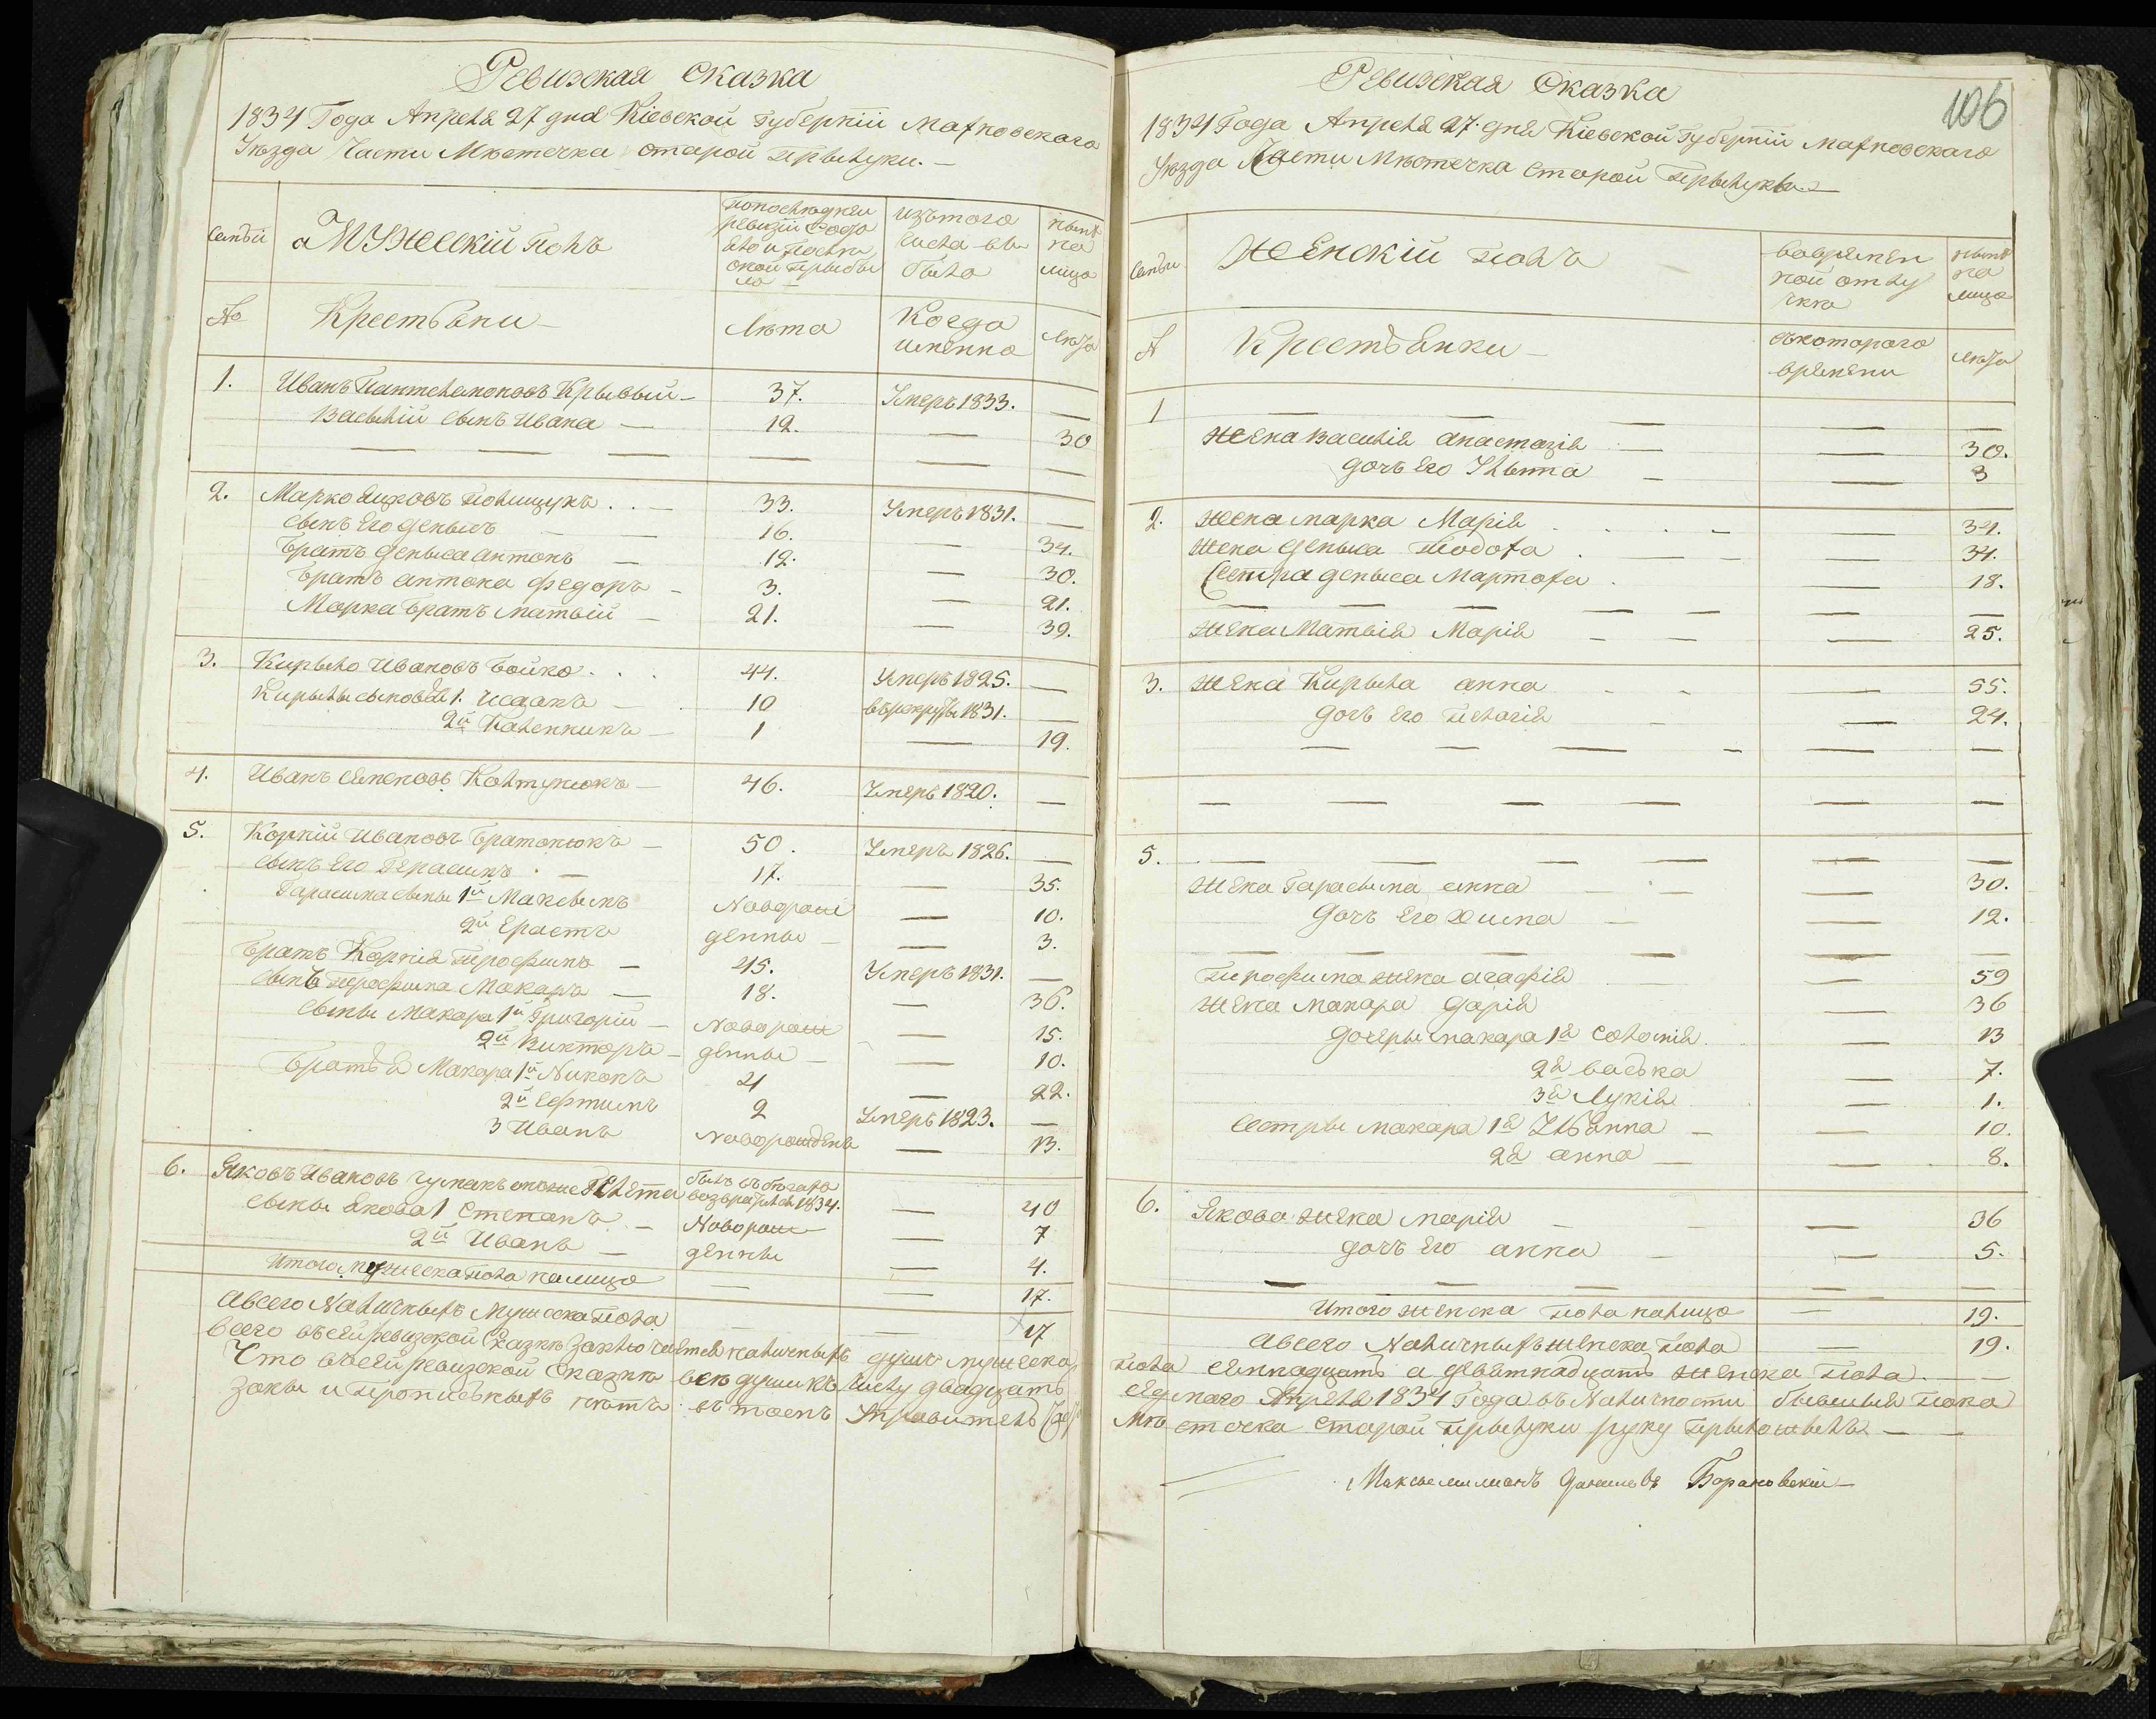 Ревизская Сказка
1834 Года Апреля 27 дня Кіевской Губерніи Махновского
Уѣзда Части Мѣстечка старой Прылуки. —
Семьи
Мужескій Полъ
Попоследней
ревизіи Состо
яло и После
оной Прыбы
ло
изътого
числа вы
было
ныне
на
лицо
№
Крестьяни
Лѣта
Когда
имянно
Лѣта
1. Иванъ Пантелемоновъ Крывый — 37. Умеръ 1833. —
Васылій сынъ Ивана — 12. — 30
2. Марко Яцковъ Полищукъ . . — 33. Умеръ 1831. —
сынъ Его Денысъ — 16. — 34.
братъ Дениса Антонъ — 12. — 30.
братъ антона федоръ — 3. — 21.
Марка братъ матвій — 21. — 39.
3. Кирыло Ивановъ Бойко . . . 44. Умеръ 1825. —
Кирылы сыновья 1. Исаакъ — 10 върекруты 1831. —
2й Каленникъ — 1 — 19.
4. Иванъ Семеновъ Колтунюкъ — 46. Умеръ 1820. —
5. Корній Ивановъ Братанюкъ — 50. Умеръ 1826. —
сынъ Его Герасимъ — 17. — 35.
Гарасима сыны 1й Максымъ Новорож — 10.
2й Ерастъ денны — — 3.
братъ Корнія Трофимъ — 45. Умеръ 1831. —
сынъ трофима Макаръ — 18. — 36.
сыны Макара 1й Григорій — Новорож — 15.
2й Викторъ — денны — — 10.
братья Макара 1й Никонъ 4 — 22.
2й Сафтимъ 2 Умеръ 1823. —
3 Иванъ Новорожденъ — 13.
6. Яковъ Ивановъ чумакъ онже былъ въ бегахъ
возвратился 1834. — 40
сыны Якова 1 Степанъ — Новорож — 7
2й Иванъ — денны — 4.
Итого мужеска пола налицо — — 17.
Авсего Наличныхъ Мужеска Пола — — 17
Всего въсей ревизской Сказкѣ Заключается наличныхъ душъ мужеска
Что въсей ревизской Сказкѣ всѣ души къ числу двадцать
и Прописныхъ нетъ въ томъ Управитель
106
Ревизская Сказка
1834 Года Апреля 27. дня Кіевской Губерніи Махновского
Уѣзда Части Мѣстечка Старой Прылуки. —
Семьи
Женскій Полъ
вовремен
ной отлу
чкѣ
ныне
на
лицо
№
Крестьянки —
съкоторого
времени
лѣта
1 — — — — —
жена Василія анастазія — — 30.
дочь Его Ульяна — — 3
2. жена марка Марія . . . — — 34.
жена Дениса Теодота . — — 34.
Сестра дениса Мартоха . — 18.
— — — — — — —
жена Матвія Марія — — — 25.
3. жена Кирыла анна — — — 55.
дочь Его Пелагія — — 24.
— — — — — —
— — — — — —
5. — — — — — —
жена Гарасима анна — — — 30.
дочъ Его Хима — — 12.
— — — — — — —
Трофима жена агафія — — 59
жена макара Дарія — 36
дочери макара 1я Соломія — 13
2я васька — 7.
3я Лукія — 1.
Сестры макара 1я Ульянна — — 10.
2я анна — — 8.
6. Якова жена марія — — — 36
дочъ Его анна — — 5.
— — — — —
Итого женска пола налицо — 19.
Авсего Наличныхъ женска Пола — 19.
Пола Семнадцать а девятнадцать женска Пола. — —
седмого Апреля 1834 Года въ Наличности бывшыя пока
Мѣсточка Старой Прылуки руку Прыложылъ — —
Максымилианъ Данилевъ Барановскій —